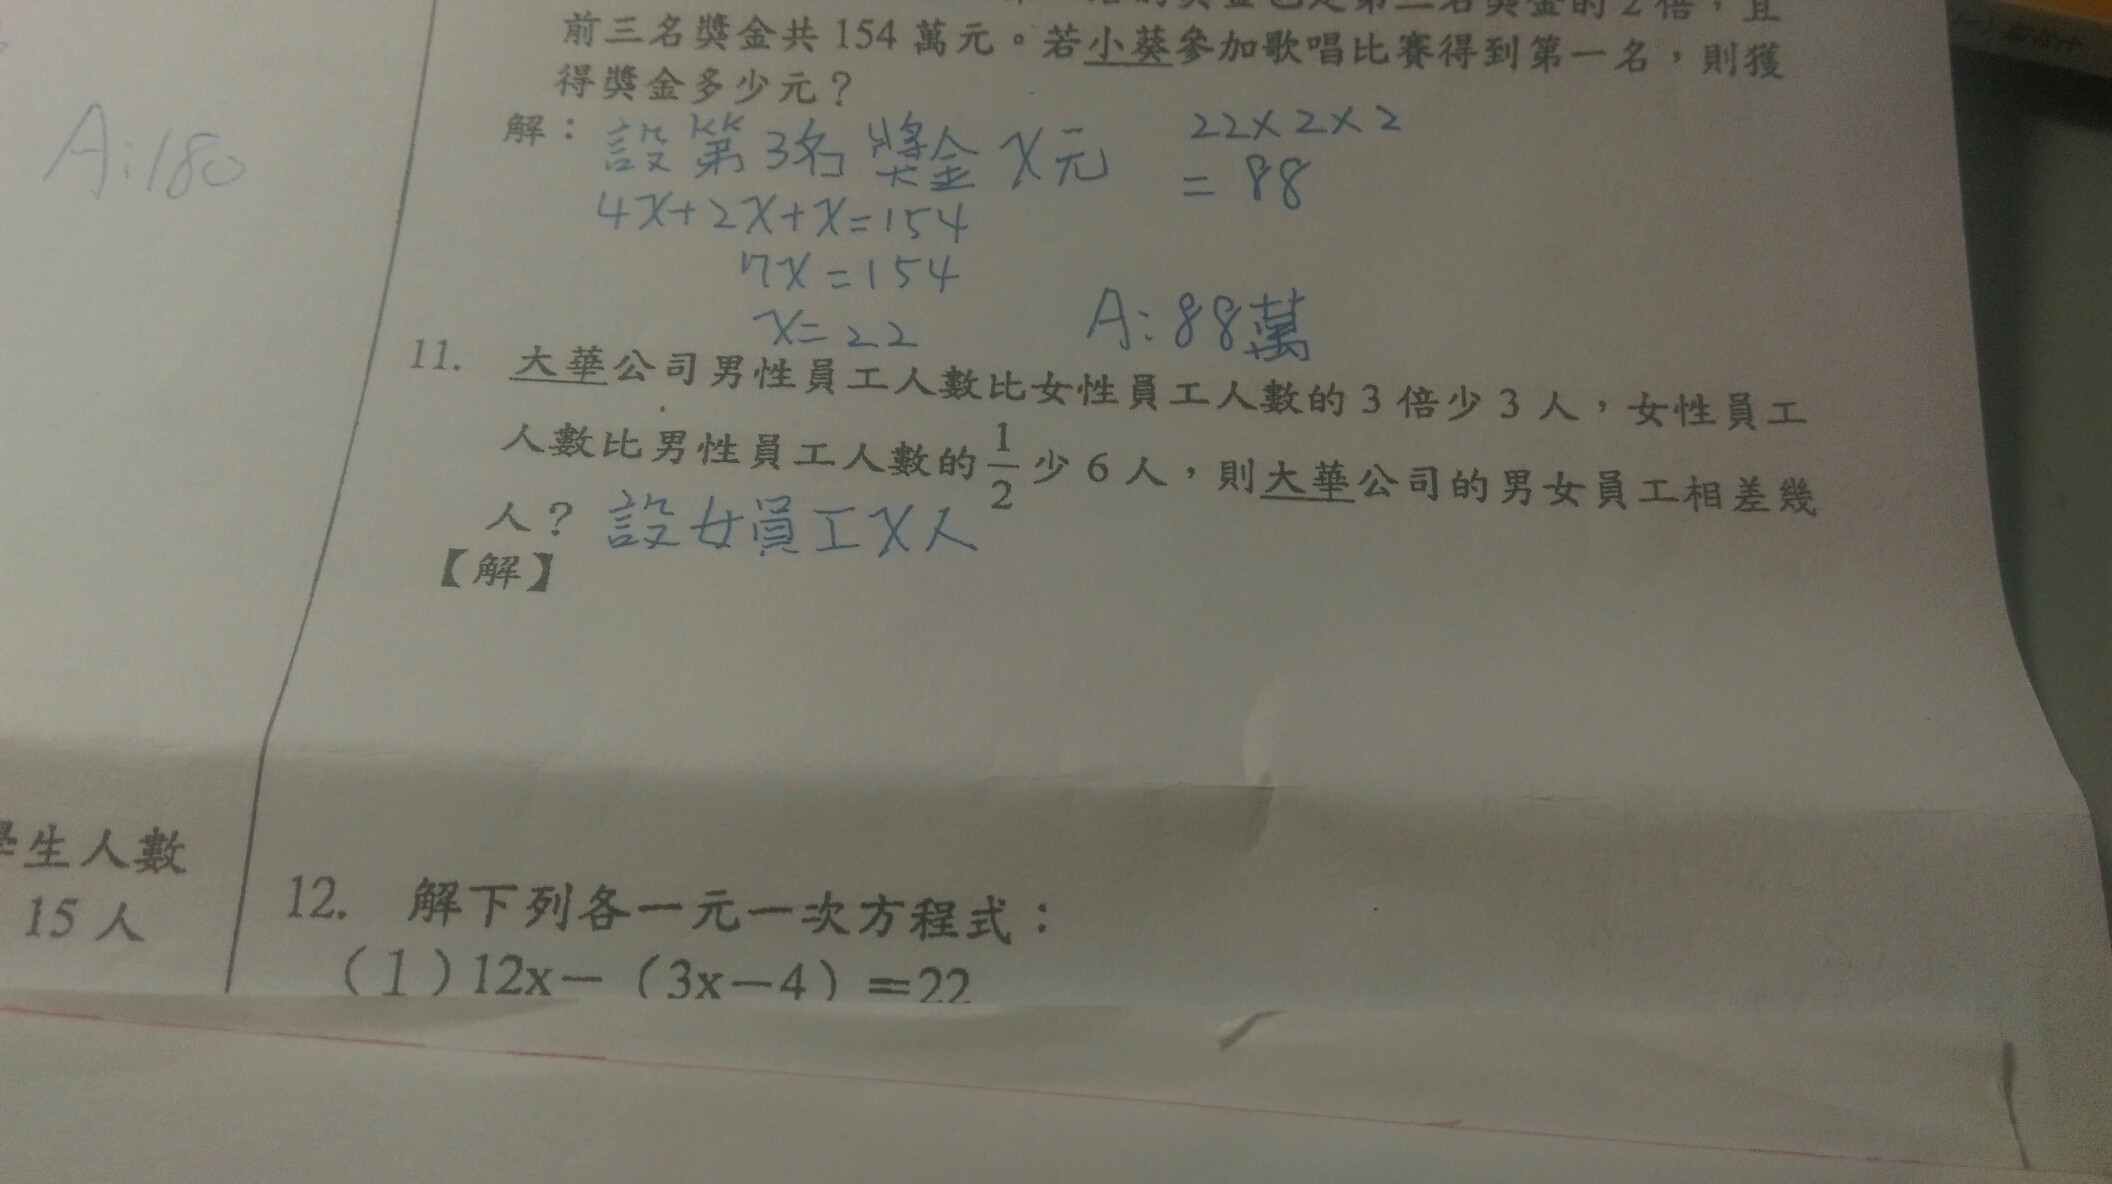 A:180
獎金也是第二名獎金的2倍，且
前三名獎金共154萬元。若小葵參加歌唱比賽得到第一名，則獲
得獎金多少元？
解：設第3名獎金X元 22×2×2
=88
4X+2X+X=154
7X=154
X=22
A:88萬
11. 大華公司男性員工人數比女性員工人數的3倍少3人，女性員工
人數比男性員工人數的1/2少6人，則大華公司的男女員工相差幾
人？ 設女員工X人
【解】
學生人數
15人
12. 解下列各一元一次方程式：
（1）12x－（3x－4）＝22